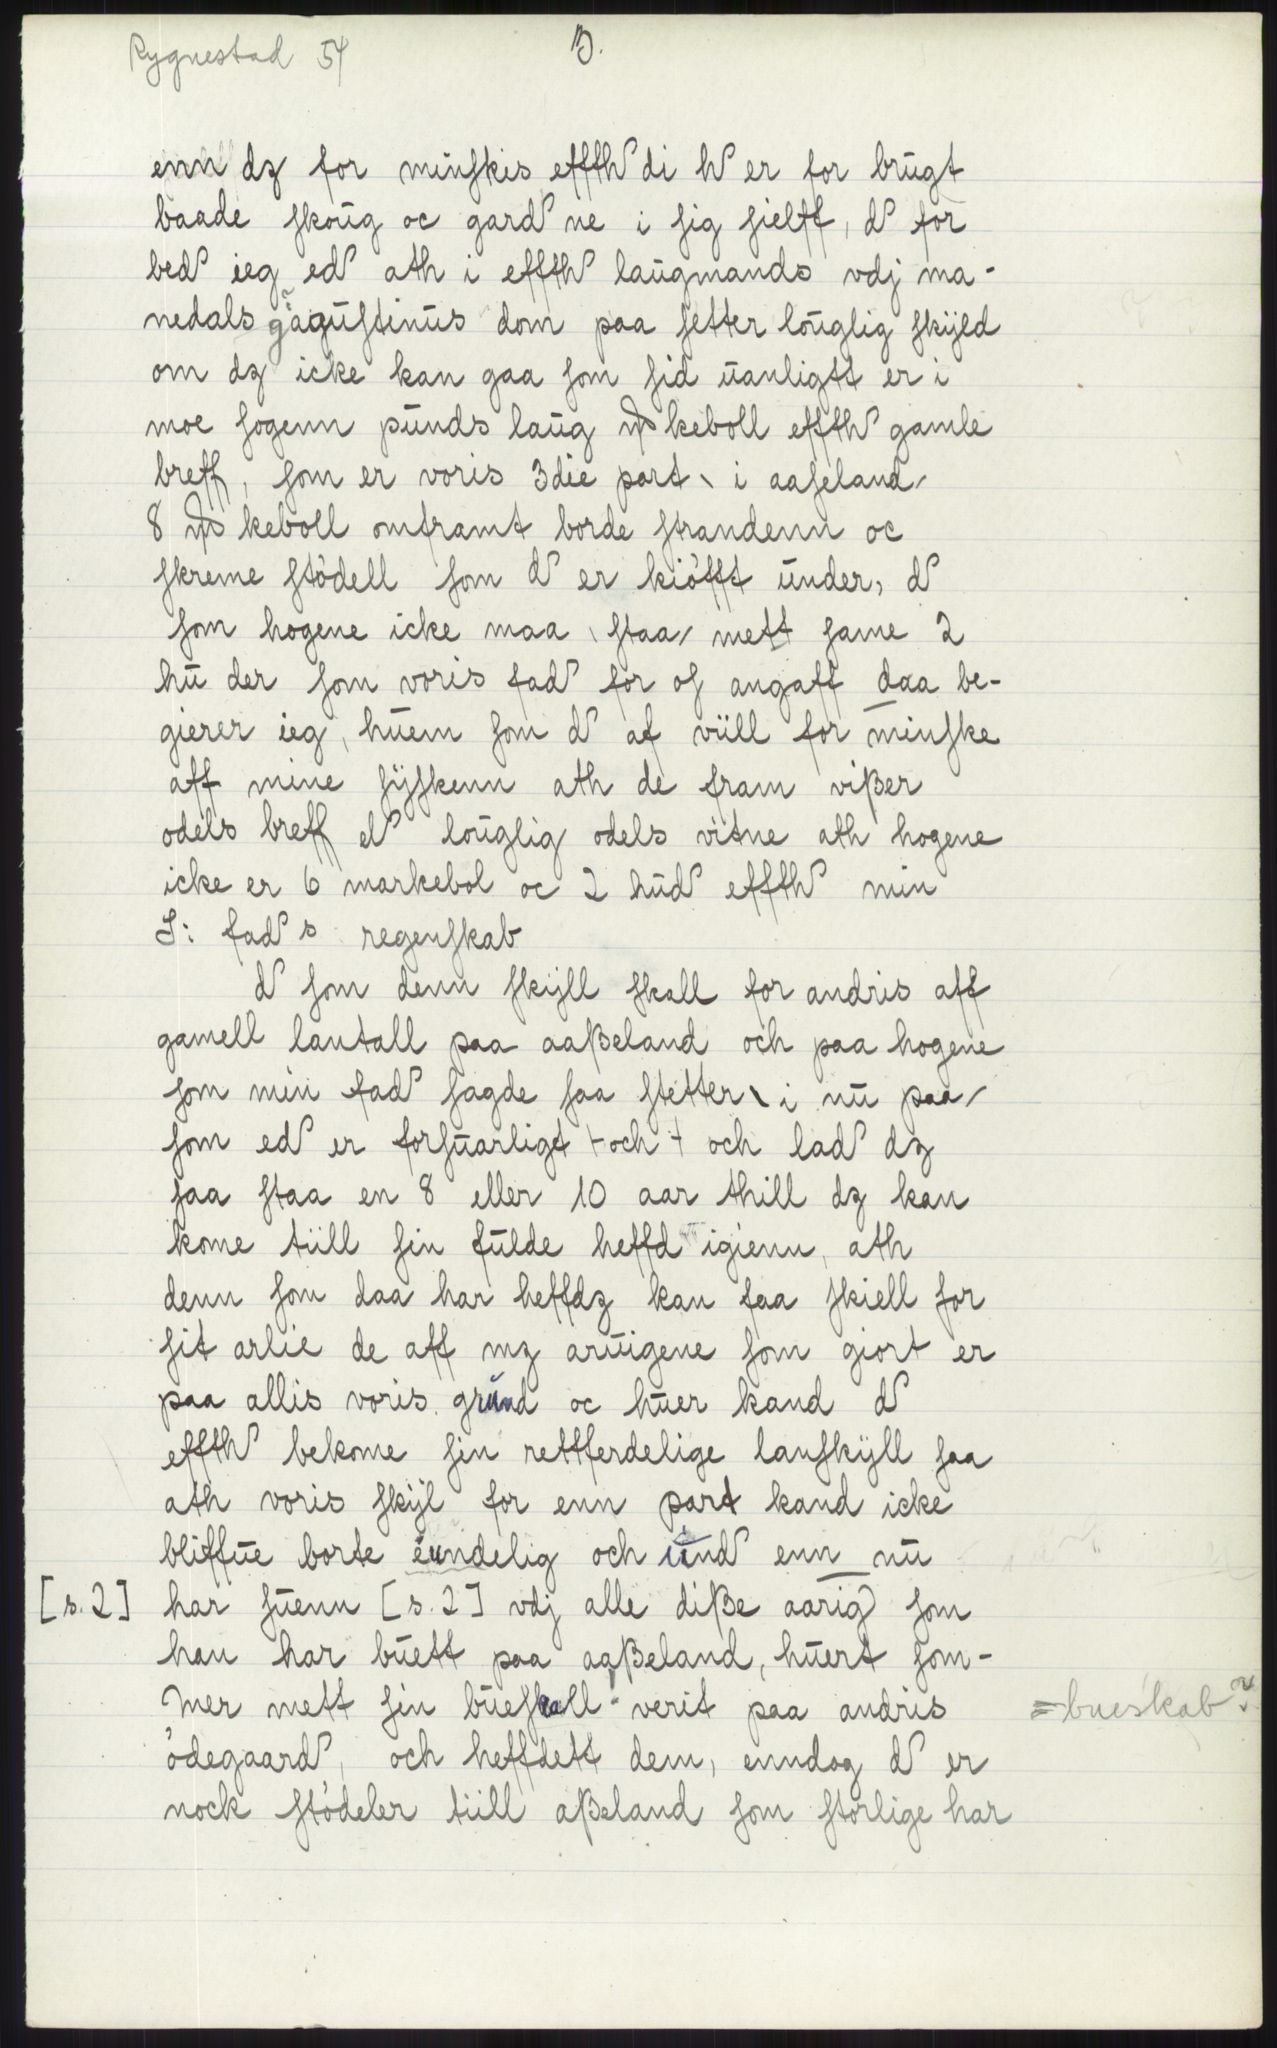 Rygnestad 54
3.
enn dz for minſkis effthꝰ di hꝰ er for brŭgt
baade ſkoŭg oc gardꝰ ne i ſig ſielff, dꝰ for
bedꝰ ieg edꝰ ath i effthꝰ laŭgmands vdj ma-
nedals gaagŭſtinŭs dom paa ſetter loŭglig ſkÿld
om dz icke kan gaa ſom ſid ŭanligtt er i
moe ſogenn pŭnds laŭg mꝭkeboll effthꝰ gamle
breff, ſom er voris 3die part \ i aaſeland /
8 mꝭkeboll omframt borde ſtrandenn oc
ſkreme ſtödell ſom dꝰ er kiöfft ŭnder, dꝰ
ſom hogene icke maa \ ſtaa / mett ſame 2
hŭ der ſom voris fadꝰ for oſ angaff daa be-
gierer ieg, hŭem ſom dꝰ af vüll for minſke
aff mine ſÿſkenn ath de fram vißer
odels breff elꝰ loŭglig odels vitne ath hogene
icke er 6 markebol oc 2 hŭdꝰ effthꝰ min
S: fadꝰ s regenſkab
dꝰ ſom denn ſkÿll ſkall for andris aff
gamell lantall paa aaßeland och paa hogene
ſom min fadꝰ ſagde ſaa ſtetter \ i nŭ paa /
ſom edꝰ er forſŭarligt + och + och ladꝰ dz
ſaa ſtaa en 8 eller 10 aar thill dz kan
kome tüll ſin fŭlde heffd igienn, ath
denn ſom daa har heffdz kan faa ſkiell for
ſit arlie de aff mz arŭigene ſom giort er
paa allis voris grŭnd oc hŭer kand dꝰ
effthꝰ bekome ſin rettferdelige lanſkÿll ſaa
ath voris ſkÿl for enn part kand icke
bliffŭe borte eŭndelig och ŭndꝰ enn nŭ
[s. 2] har ſŭenn [s. 2] vdj alle diße aarig ſom
han har bŭett paa aaßeland, hŭert ſom-
mer mett ſin bŭeſkall verit paa andris = bueskab?
ödegaardꝰ, och heffdett dem, enndog dꝰ er
nock ſtödeler tüll aßeland ſom ſtorlige har